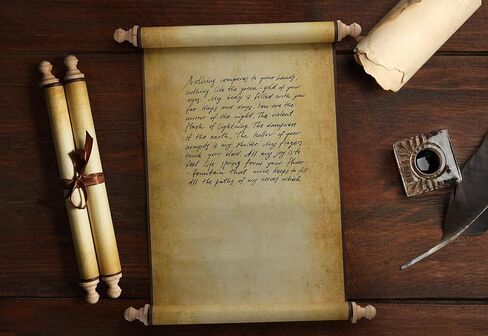 Nothing compares to your hands,
nothing like the green-gold of your
eyes. My body is filled with you
for days and days. You are the
mirror of the night. The violent
flash of lightning. The dampness
of the earth. The hollow of your
armpits is my shelter. My fingers
touch your blood. All my joy is to
feel life spring from your flower
-fountain that mine keeps to fill
all the paths of my nerves which